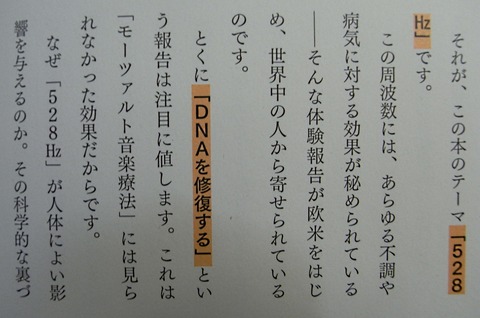 それが、この本のテーマ「528
Hz」です。
この周波数には、あらゆる不調や
病気に対する効果が秘められている
――そんな体験報告が欧米をはじ
め、世界中の人から寄せられている
のです。
とくに「DNAを修復する」とい
う報告は注目に値します。これは
「モーツァルト音楽療法」には見ら
れなかった効果だからです。
なぜ「528Hz」が人体によい影
響を与えるのか。その科学的な裏づ